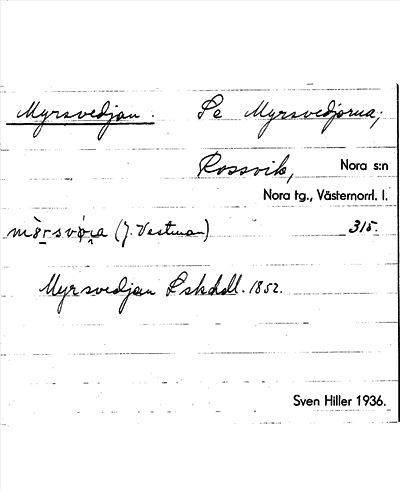 Myrsvedjan. Se Myrsvedjorna,
Rossvik, Nora s:n
Nora tg., Västernorrl. l.
(J. Vestman) 315.
Myrsvedjan Lskohdl. 1852.
Sven Hiller 1936.